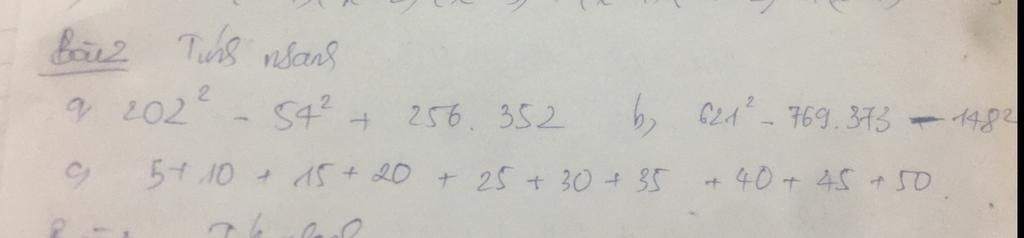 Bài 2 Tính nhanh
a, 202² - 54² + 256. 352 b, 621² - 769.373 - 148²
c, 5+10 + 15 + 20 + 25 + 30 + 35 + 40 + 45 + 50